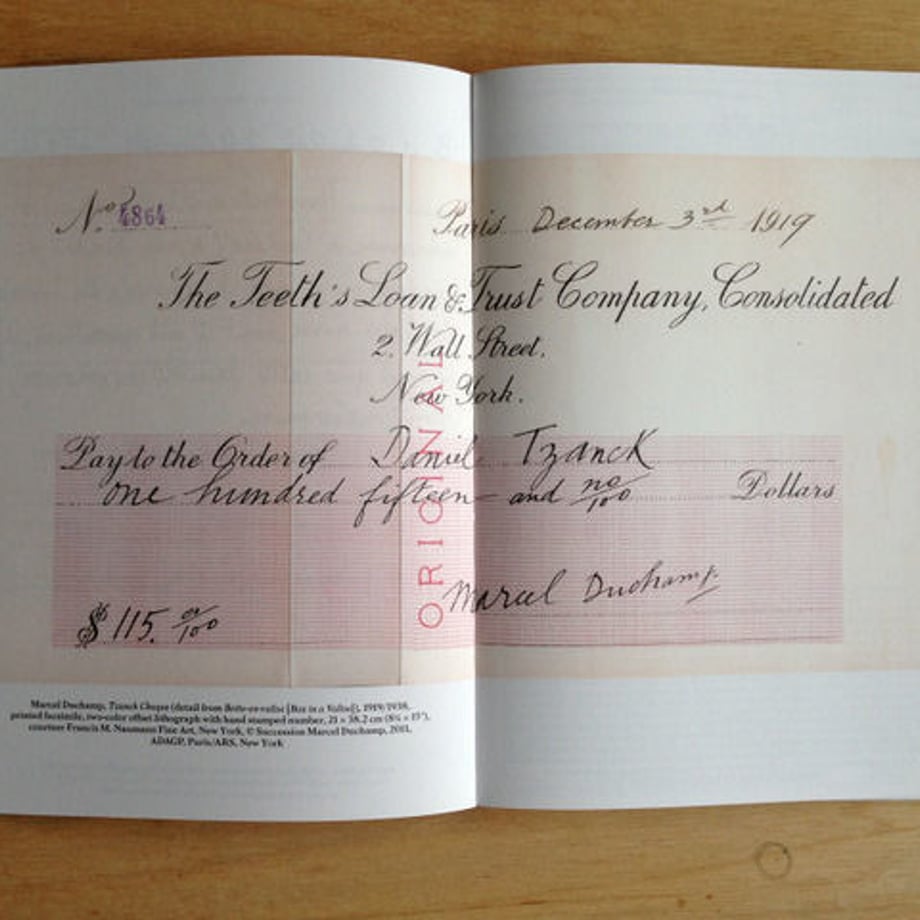 No 4864 Paris December 3rd 1919
The Teeth's Loan & Trust Company, Consolidated
2. Wall Street.
New York.
Pay to the Order of Daniel Tzanck
one hundred fifteen and no/100 Dollars
ORIGINAL
Marcel Duchamp.
$ 115. oo/100
Marcel Duchamp, Tzanck Cheque (detail from Boîte-en-valise [Box in a Valise]), 1919/1938,
printed facsimile, two-color offset lithograph with hand stamped number, 21 × 38.2 cm (8¼ × 15"),
courtesy Francis M. Naumann Fine Art, New York. © Succession Marcel Duchamp, 2011,
ADAGP, Paris/ARS, New York